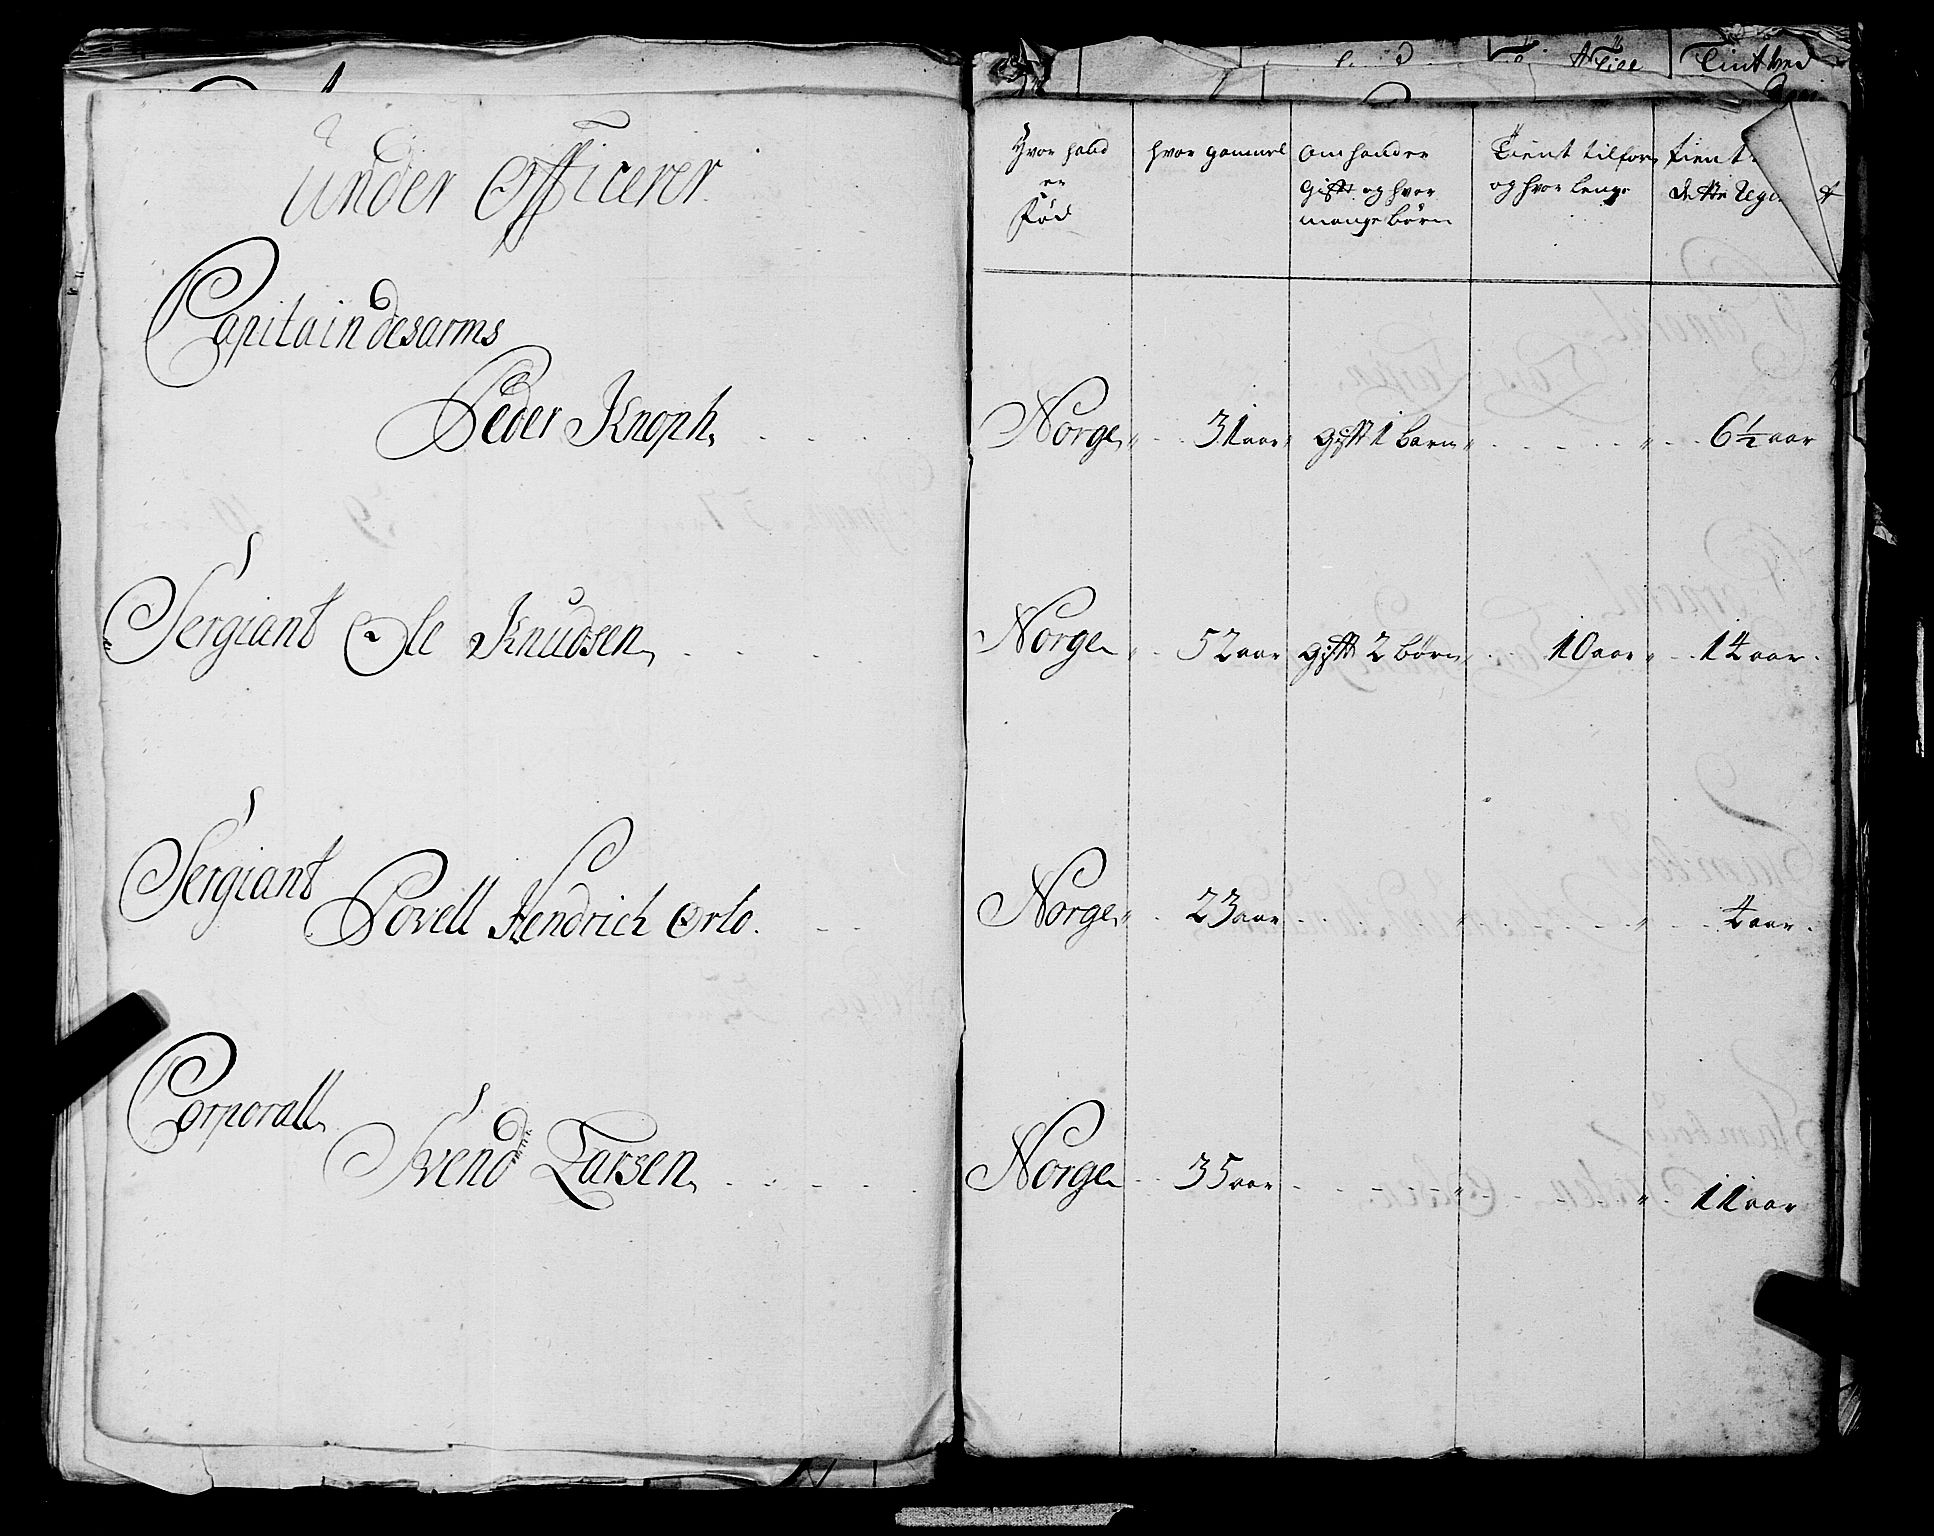 Under Officerer
Hvor hand
er
Fød
hvor gammel
om hand er
Gift og hvor
mange børn
Tient tilforn
og hvor lenge
tient
dette Regi
Capitain desarms
Peder Knoph
Norge
31 aar
gift 1 barn
6½ aar
Sergiant Ole Knudsen
Norge
52 aar
gift 2 børn
10 aar
14 aar
Sergiant
Povell Hendrich Orlo
Norge
23 aar
4 aar
Corporall
Svend Larsen
Norge
35 aar
11 aar